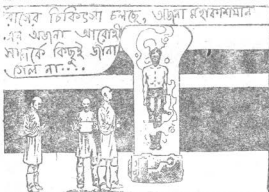 চিকিৎসা চলছে, অজানা মহাকাশযান
এবং অজানা আরোহী
সম্পর্কে কিছুই জানা
গেল না...